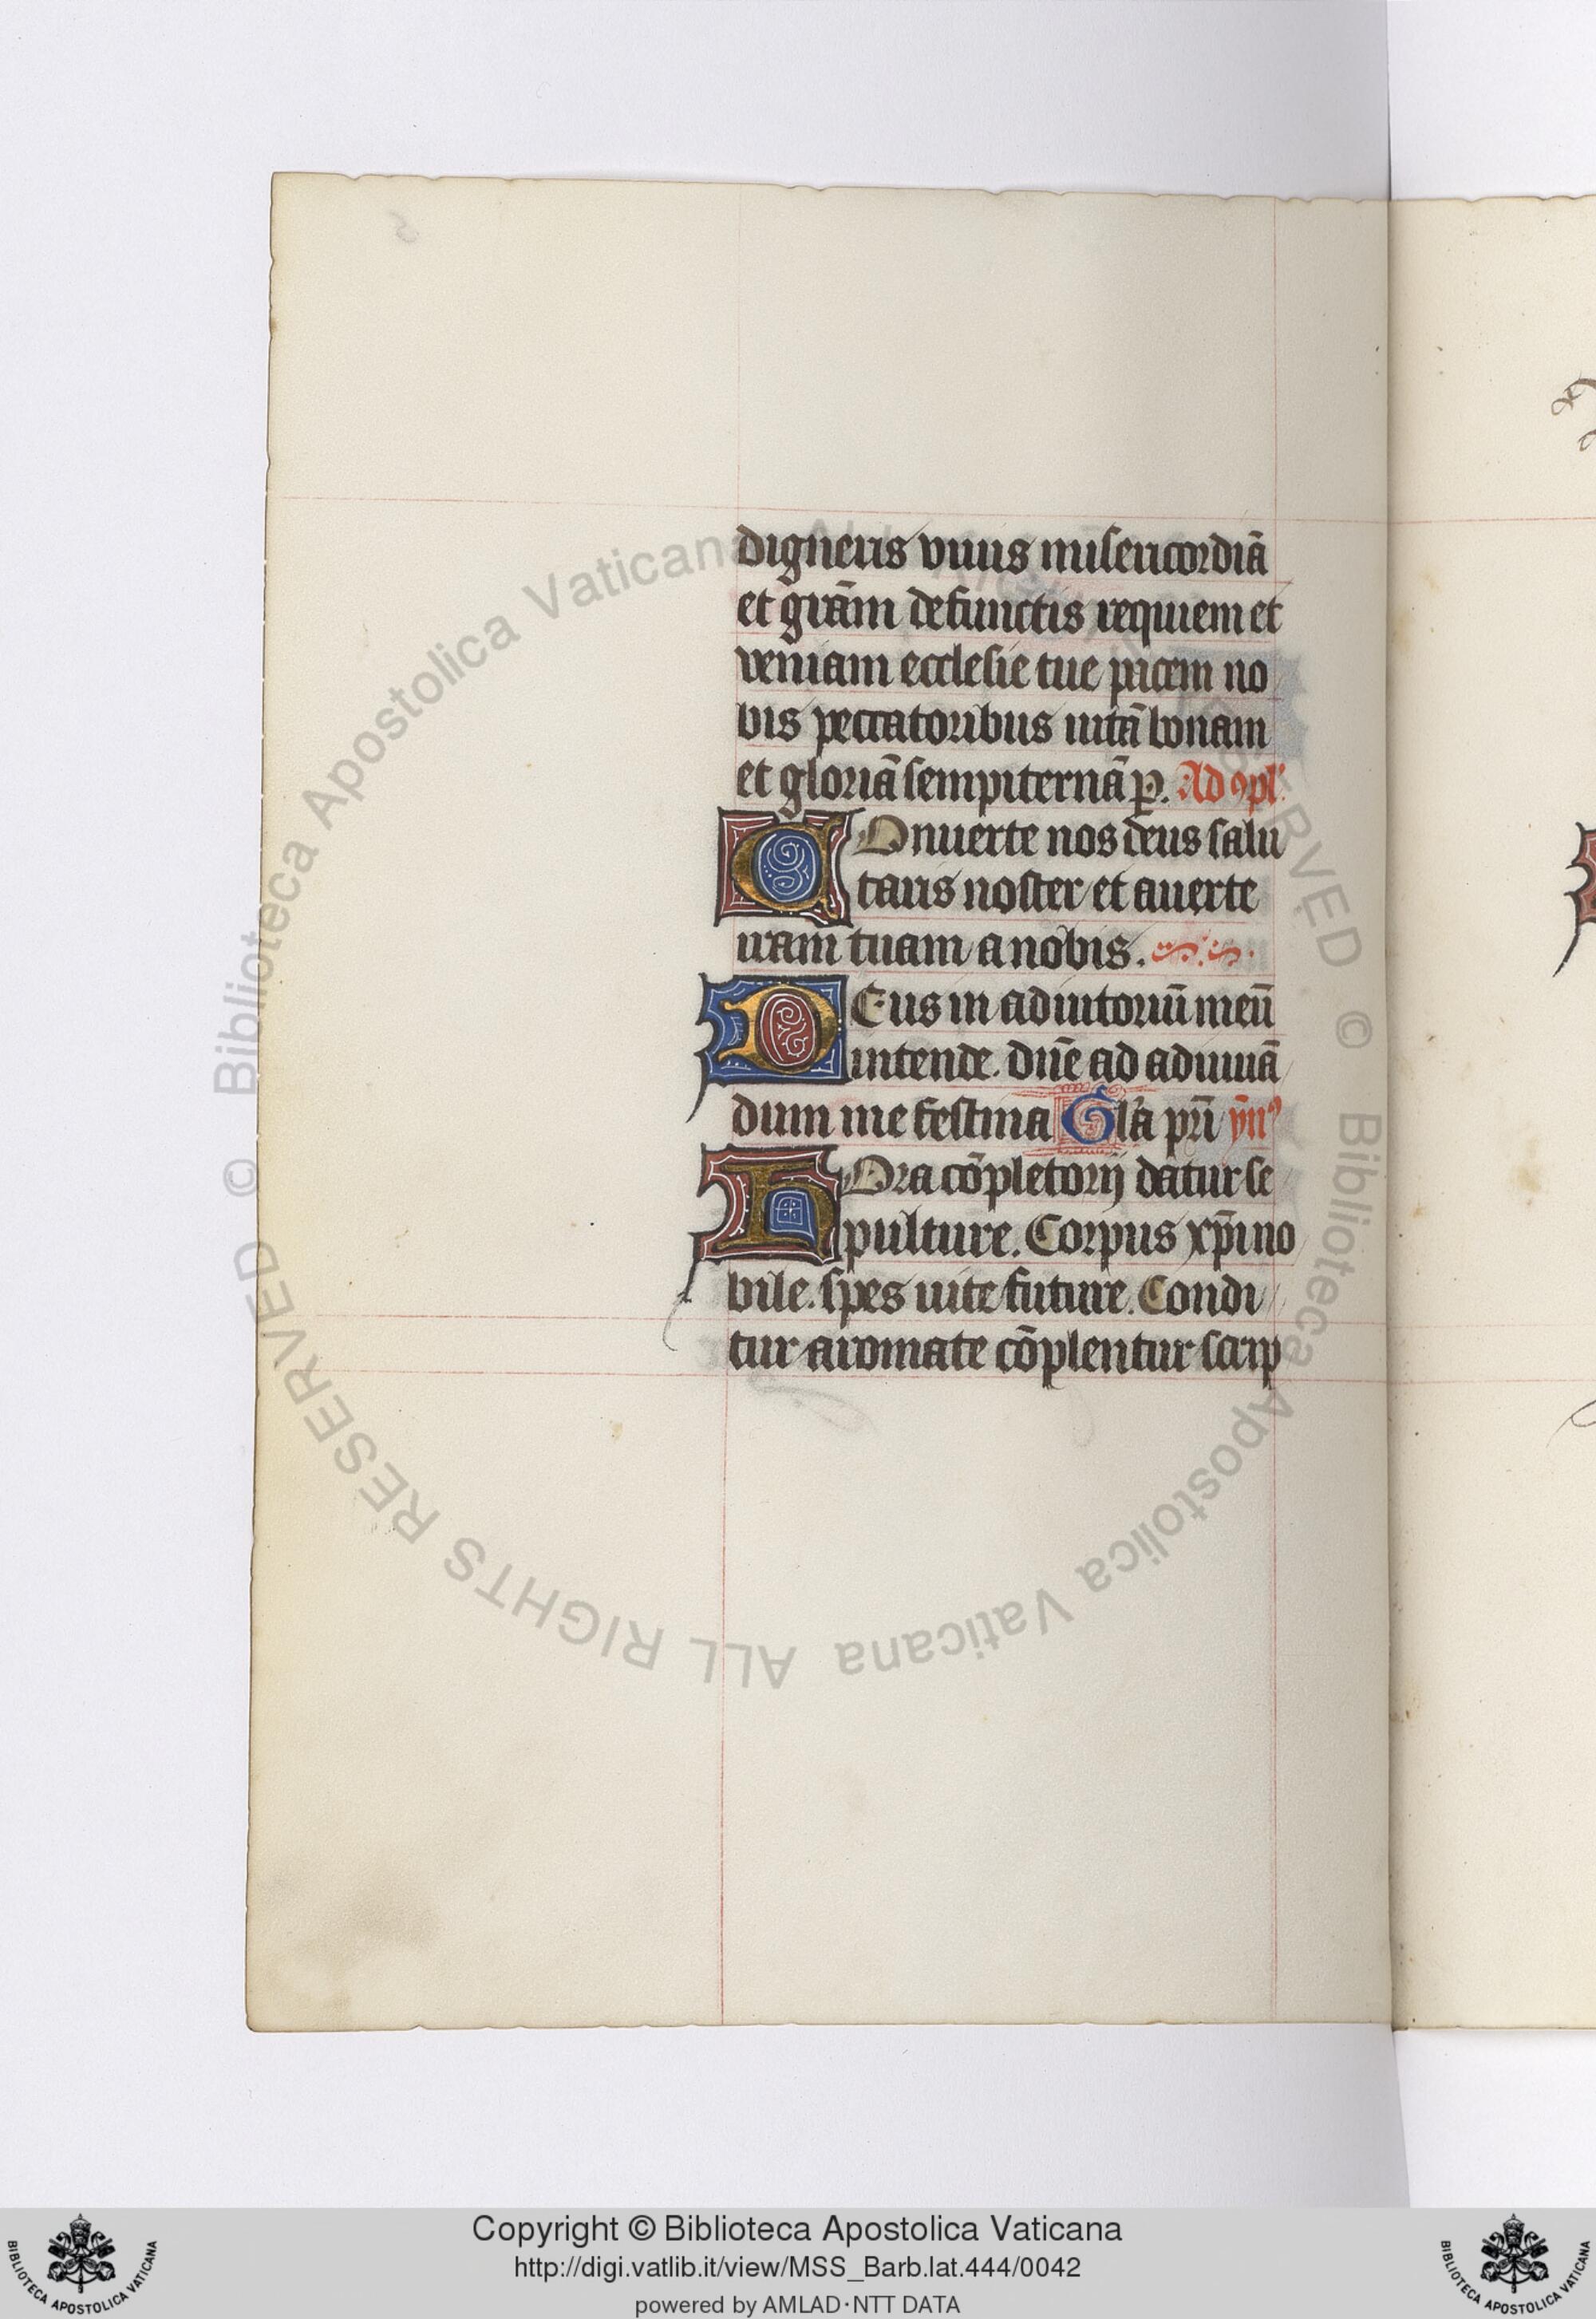 digneris viuis misericordiā
et grām defunctis requiem et
veniam ecclesie tue pacem no
bis peccatoribus uitā bonam
et gloriā sempiternā p. Ad ꝯpl'.
COnuerte nos deus salu
taris noster et auerte
iram tuam a nobis.
DEus in adiutoriū meū
intende. dn̄e ad adiuuā
dum me festina Gl'a pr̄i ȳn9
HOra cōpletorij datur se
pulture. Corpus xp̄i no
bile. spes uite future. Condi
tur aromate cōplentur scrip
© Biblioteca Apostolica Vaticana ALL RIGHTS RESERVED
© Biblioteca Apostolica Vaticana ALL RIGHTS RESERVED
Copyright © Biblioteca Apostolica Vaticana
http://digi.vatlib.it/view/MSS_Barb.lat.444/0042
powered by AMLAD·NTT DATA
BIBLIOTECA APOSTOLICA VATICANA
BIBLIOTECA APOSTOLICA VATICANA